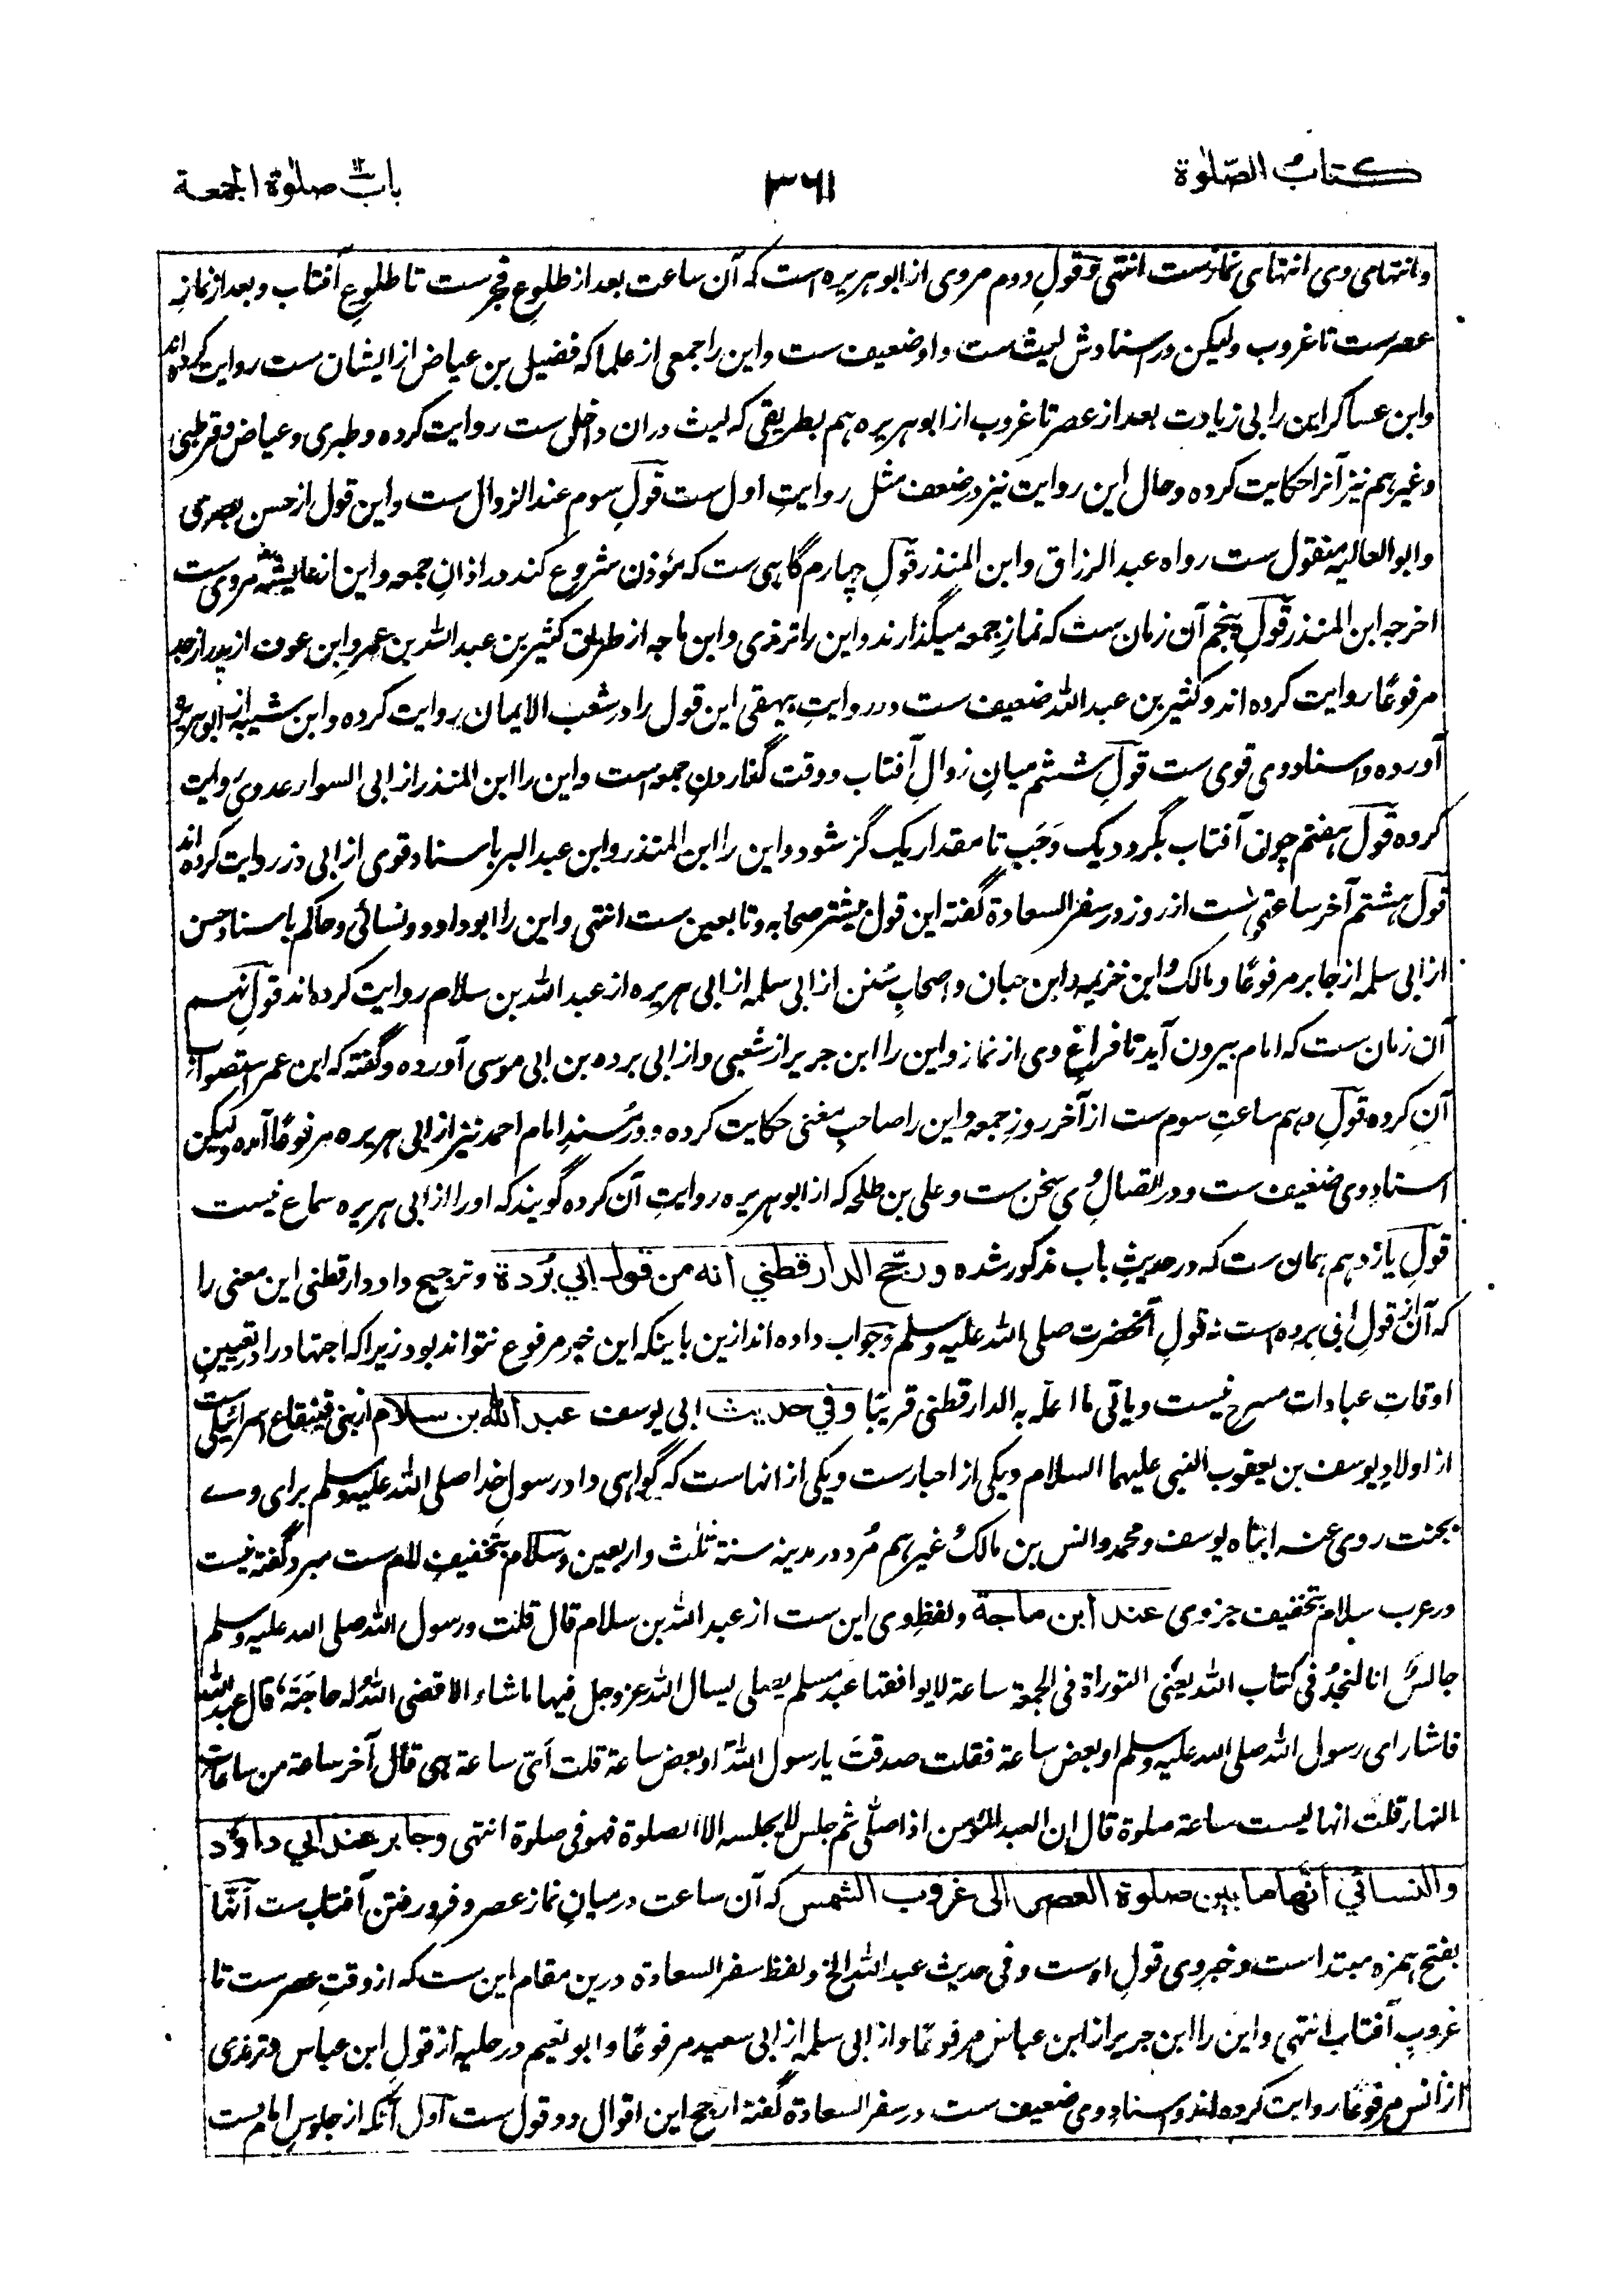 كتاب الصّلوة
٣٦١
باب صلوة الجمعة
وانتهای وی انتهای نمازست انتهی وقولِ دوم مروی از ابوهریره است که آن ساعت بعد از طلوعِ فجرست تا طلوعِ آفتاب و بعد از نمازِ
عصرست تا غروب ولیکن در اسنادش لیث ست و او ضعیف ست و این را جمعی از علما که فضیل بن عیاض از ایشان ست روایت کرده اند
و ابن عساکر این را بی زیادت بعد از عصر تا غروب از ابوهریره هم بطریقی که لیث دران داخل ست روایت کرده و طبری و عیاض و قرطبی
و غیرهم نیز آنرا حکایت کرده و حال این روایت نیز در ضعف مثل روایتِ اول ست قولِ سوم عند الزوال ست و این قول از حسن بصری
و ابو العالیه منقول ست رواه عبد الرزاق و ابن المنذر قولِ چهارم گاهی ست که مؤذن شروع کند در اذانِ جمعه و این از عایشه مروی ست
اخرجه ابن المنذر قولِ پنجم آن زمان ست که نمازِ جمعه میگذارند و این را ترمذی و ابن ماجه از طریق کثیر بن عبد الله بن عمرو ابن عوف از پدر از جد
مرفوعًا روایت کرده اند و کثیر بن عبد الله ضعیف ست در روایتِ بیهقی این قول را در شعب الایمان روایت کرده و ابن شیبه از ابوهریره
آورده و اسنادِ وی قوی ست قولِ ششم میانِ زوالِ آفتاب و وقت گذاردنِ جمعه است و این را ابن المنذر از ابی السوار عدوی روایت
کرده قول هفتم چون آفتاب بگردد یک وَجَب تا مقدارِ یک گز شود و این را ابن المنذر و ابن عبد البر باسناد قوی از ابی ذر روایت کرده اند
قول هشتم آخر ساعتی ست از روز و در سفر السعادة گفته این قول بیشتر صحابه و تابعین ست انتهی و این را ابو داود و نسائی و حاکم باسناد حسن
از ابی سلمه از جابر مرفوعًا و مالک و ابن خزیمه و ابن حبان و اصحابِ سُنن از ابی سلمه از ابی هریره از عبد الله بن سلام روایت کرده اند قولِ نهم
آن زمان ست که امام بیرون آید تا فراغِ وی از نماز و این را ابن جریر از شعبی و از ابی برده بن ابی موسی آورده و گفته که ابن عمر استصوابِ
آن کرده قولِ دهم ساعتِ سوم ست از آخر روزِ جمعه و این را صاحبِ مغنی حکایت کرده و در مُسندِ امام احمد نیز از ابی هریره مرفوعًا آمده ولیکن
اسنادِ وی ضعیف ست و در اتصالِ وی سخن ست و علی بن طلحه که از ابوهریره روایتِ آن کرده گویند که او را از ابی هریره سماع نیست
قولِ یازدهم همان ست که در حدیثِ باب مذکور شده ورجّح الدارقطني انه من قول ابي بُردة و ترجیح داد دارقطنی این معنی را
که آن از قولِ ابی برده است نه قولِ آنحضرت صلی الله علیه وسلم و جواب داده اند ازین باینکه این خبر مرفوع نتواند بود زیرا که اجتهاد را در تعیینِ
اوقاتِ عبادات مسرح نیست و یاتی ما اعلّه به الدارقطنی قریبًا وفي حديث ابی یوسف عبد الله بن سلام از بنی قینقاع اسرائیلی ست
از اولادِ یوسف بن یعقوب النبی علیهما السلام و یکی از احبارست و یکی از انهاست که گواهی داد رسولِ خدا صلی الله علیه وسلم برای وے
بجنت روی عنه ابناه یوسف و محمد و انس بن مالک و غیرهم مُرد در مدینه سنة ثلٰث واربعین و سلام بتخفیفِ لام ست مبرد گفته نیست
در عرب سلام بتخفیف جز وی عند ابن ماجة و لفظِ وی این ست از عبد الله بن سلام قال قلت ورسول الله صلی الله علیه وسلم
جالسٌ انا لنجدُ فی کتاب الله یعنی التوراة فی الجمعة ساعة لا یوافقها عبد مسلم یصلی یسال الله عز وجل فیها ما شاء الا قضی اللهُ له حاجَتَه، قال عبد الله
فاشار ای رسول الله صلی الله علیه وسلم او بعض ساعة فقلت صدقتَ یا رسول الله او بعض ساعة قلت اَیّ ساعة هی قال آخر ساعة من ساعات
النهار قلت انها لیست ساعة صلوة قال اِن العبد المؤمن اذا صلی ثم جلس لا یجلسه الا الصلوة فهو فی صلوة انتهی وجابر عند ابي داؤد
والنسائي انّها ما بين صلوة العصر الى غروب الشمس که آن ساعت درمیانِ نماز عصر و فرو رفتن آفتاب ست اَنّها
بفتح همزه مبتداست و خبر وی قولِ اوست و فی حدیث عبد الله الخ و لفظ سفر السعادة درین مقام این ست که از وقتِ عصرست تا
غروبِ آفتاب انتهی و این را ابن جریر از ابن عباس مرفوعًا و از ابی سلمه از ابی سعید مرفوعًا و ابو نعیم در حلیه از قولِ ابن عباس و ترمذی
از انس مرفوعًا روایت کرده اند و اسنادِ وی ضعیف ست در سفر السعادة گفته ارجح این اقوال دو قول ست اول آنکه از جلوسِ امام ست